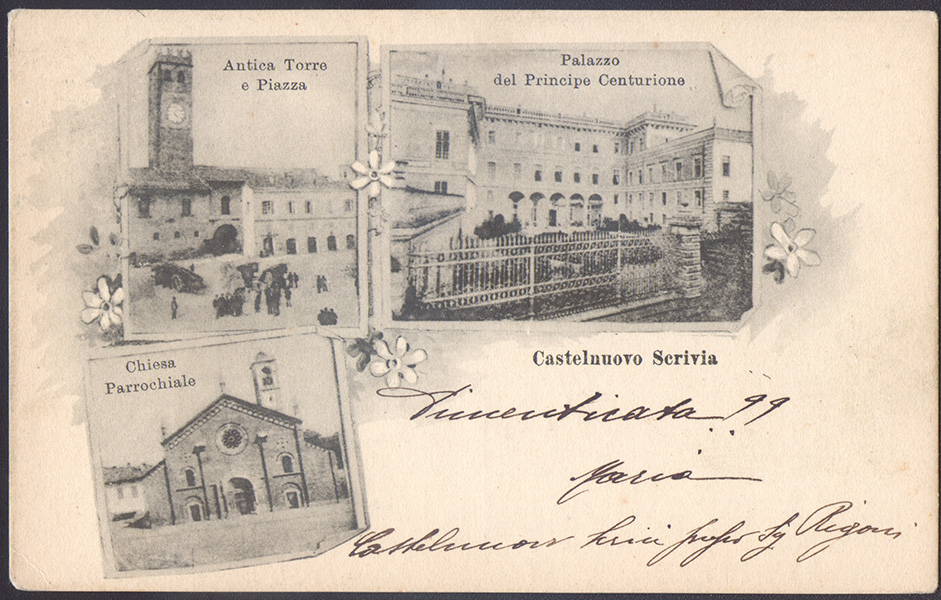 Antica Torre
e Piazza
Palazzo
del Principe Centurione
Chiesa
Parrochiale
Castelnuovo Scrivia
Dimenticata 99
Maria
Castelnuovo Sg Rigoni